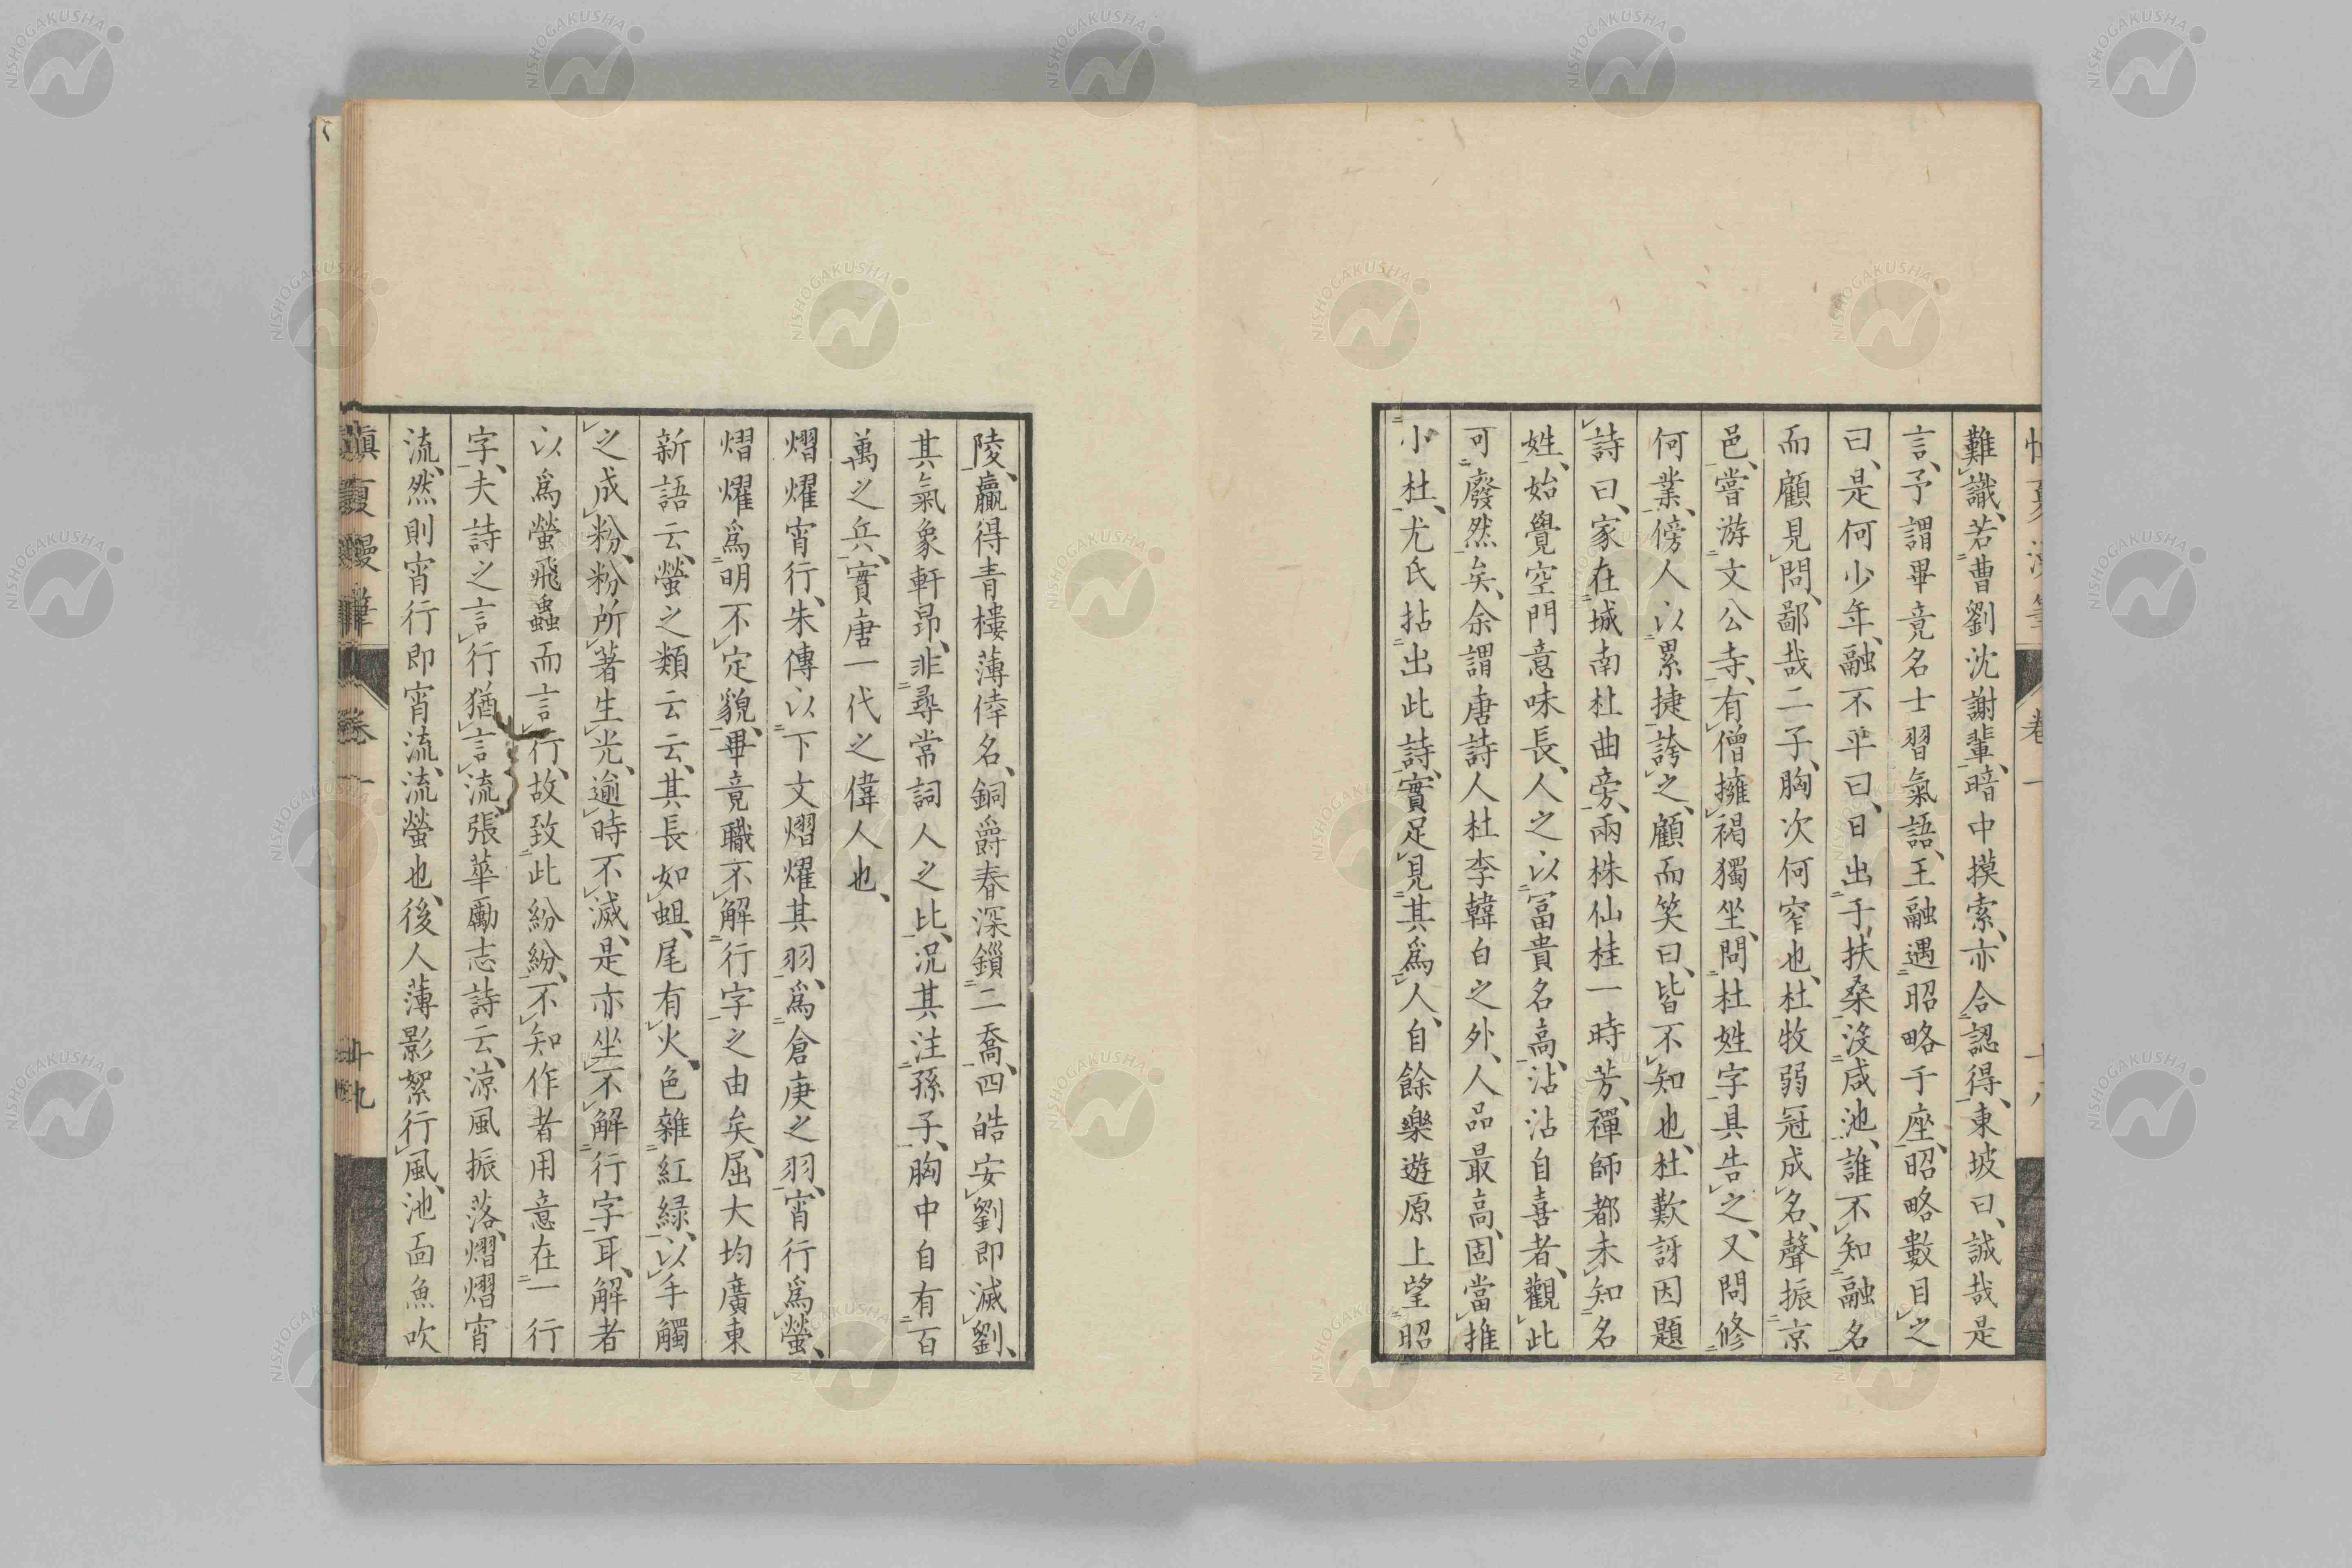 難識、若曹劉沈謝輩、暗中摸索、亦合認得、東坡曰、誠哉是
言、予謂畢竟名士習氣語、王融遇昭略于座、昭略數目之
曰、是何少年、融不平曰、日出于扶桑、沒咸池、誰不知融名
而顧見問、鄙哉二子、胸次何窄也、杜牧弱冠成名、聲振京
邑、嘗游文公寺、有僧擁褐獨坐、問杜姓字、具告之、又問修
何業、傍人以累捷誇之、顧而笑曰、皆不知也、杜歎訝因題
詩曰、家在城南杜曲旁、兩株仙桂一時芳、禪師都未知名
姓、始覺空門意味長、人之以冨貴名高、沾沾自喜者、觀此
可廢然矣、余謂唐詩人杜李韓白之外、人品最高、固當推
小杜、尤氏拈出此詩、實足見其爲人、自餘樂遊原上望昭
陵、贏得青樓薄倖名、銅爵春深鎻二喬、四皓安劉即滅劉、
其氣象軒昂、非尋常詞人之比、況其注孫子、胸中自有百
萬之兵、實唐一代之偉人也、
熠燿宵行、朱傳以下文熠燿其羽、爲倉庚之羽、宵行爲螢、
熠燿爲明不定貌、畢竟職不解行字之由矣、屈大均廣東
新語云、螢之類云云、其長如蛆、尾有火、色雜紅緑、以手觸
之成粉、粉所著生光、逾時不滅、是亦坐不解行字耳、解者
以爲螢飛蟲而言行、故致此紛紛、不知作者用意在一行
字、夫詩之言行猶言流、張華勵志詩云、涼風振落、熠熠宵
流、然則宵行即宵流、流螢也、後人薄影絮行風、池面魚吹
慎夏漫筆 卷一 十九
卷一
NISHOGAKUSHA